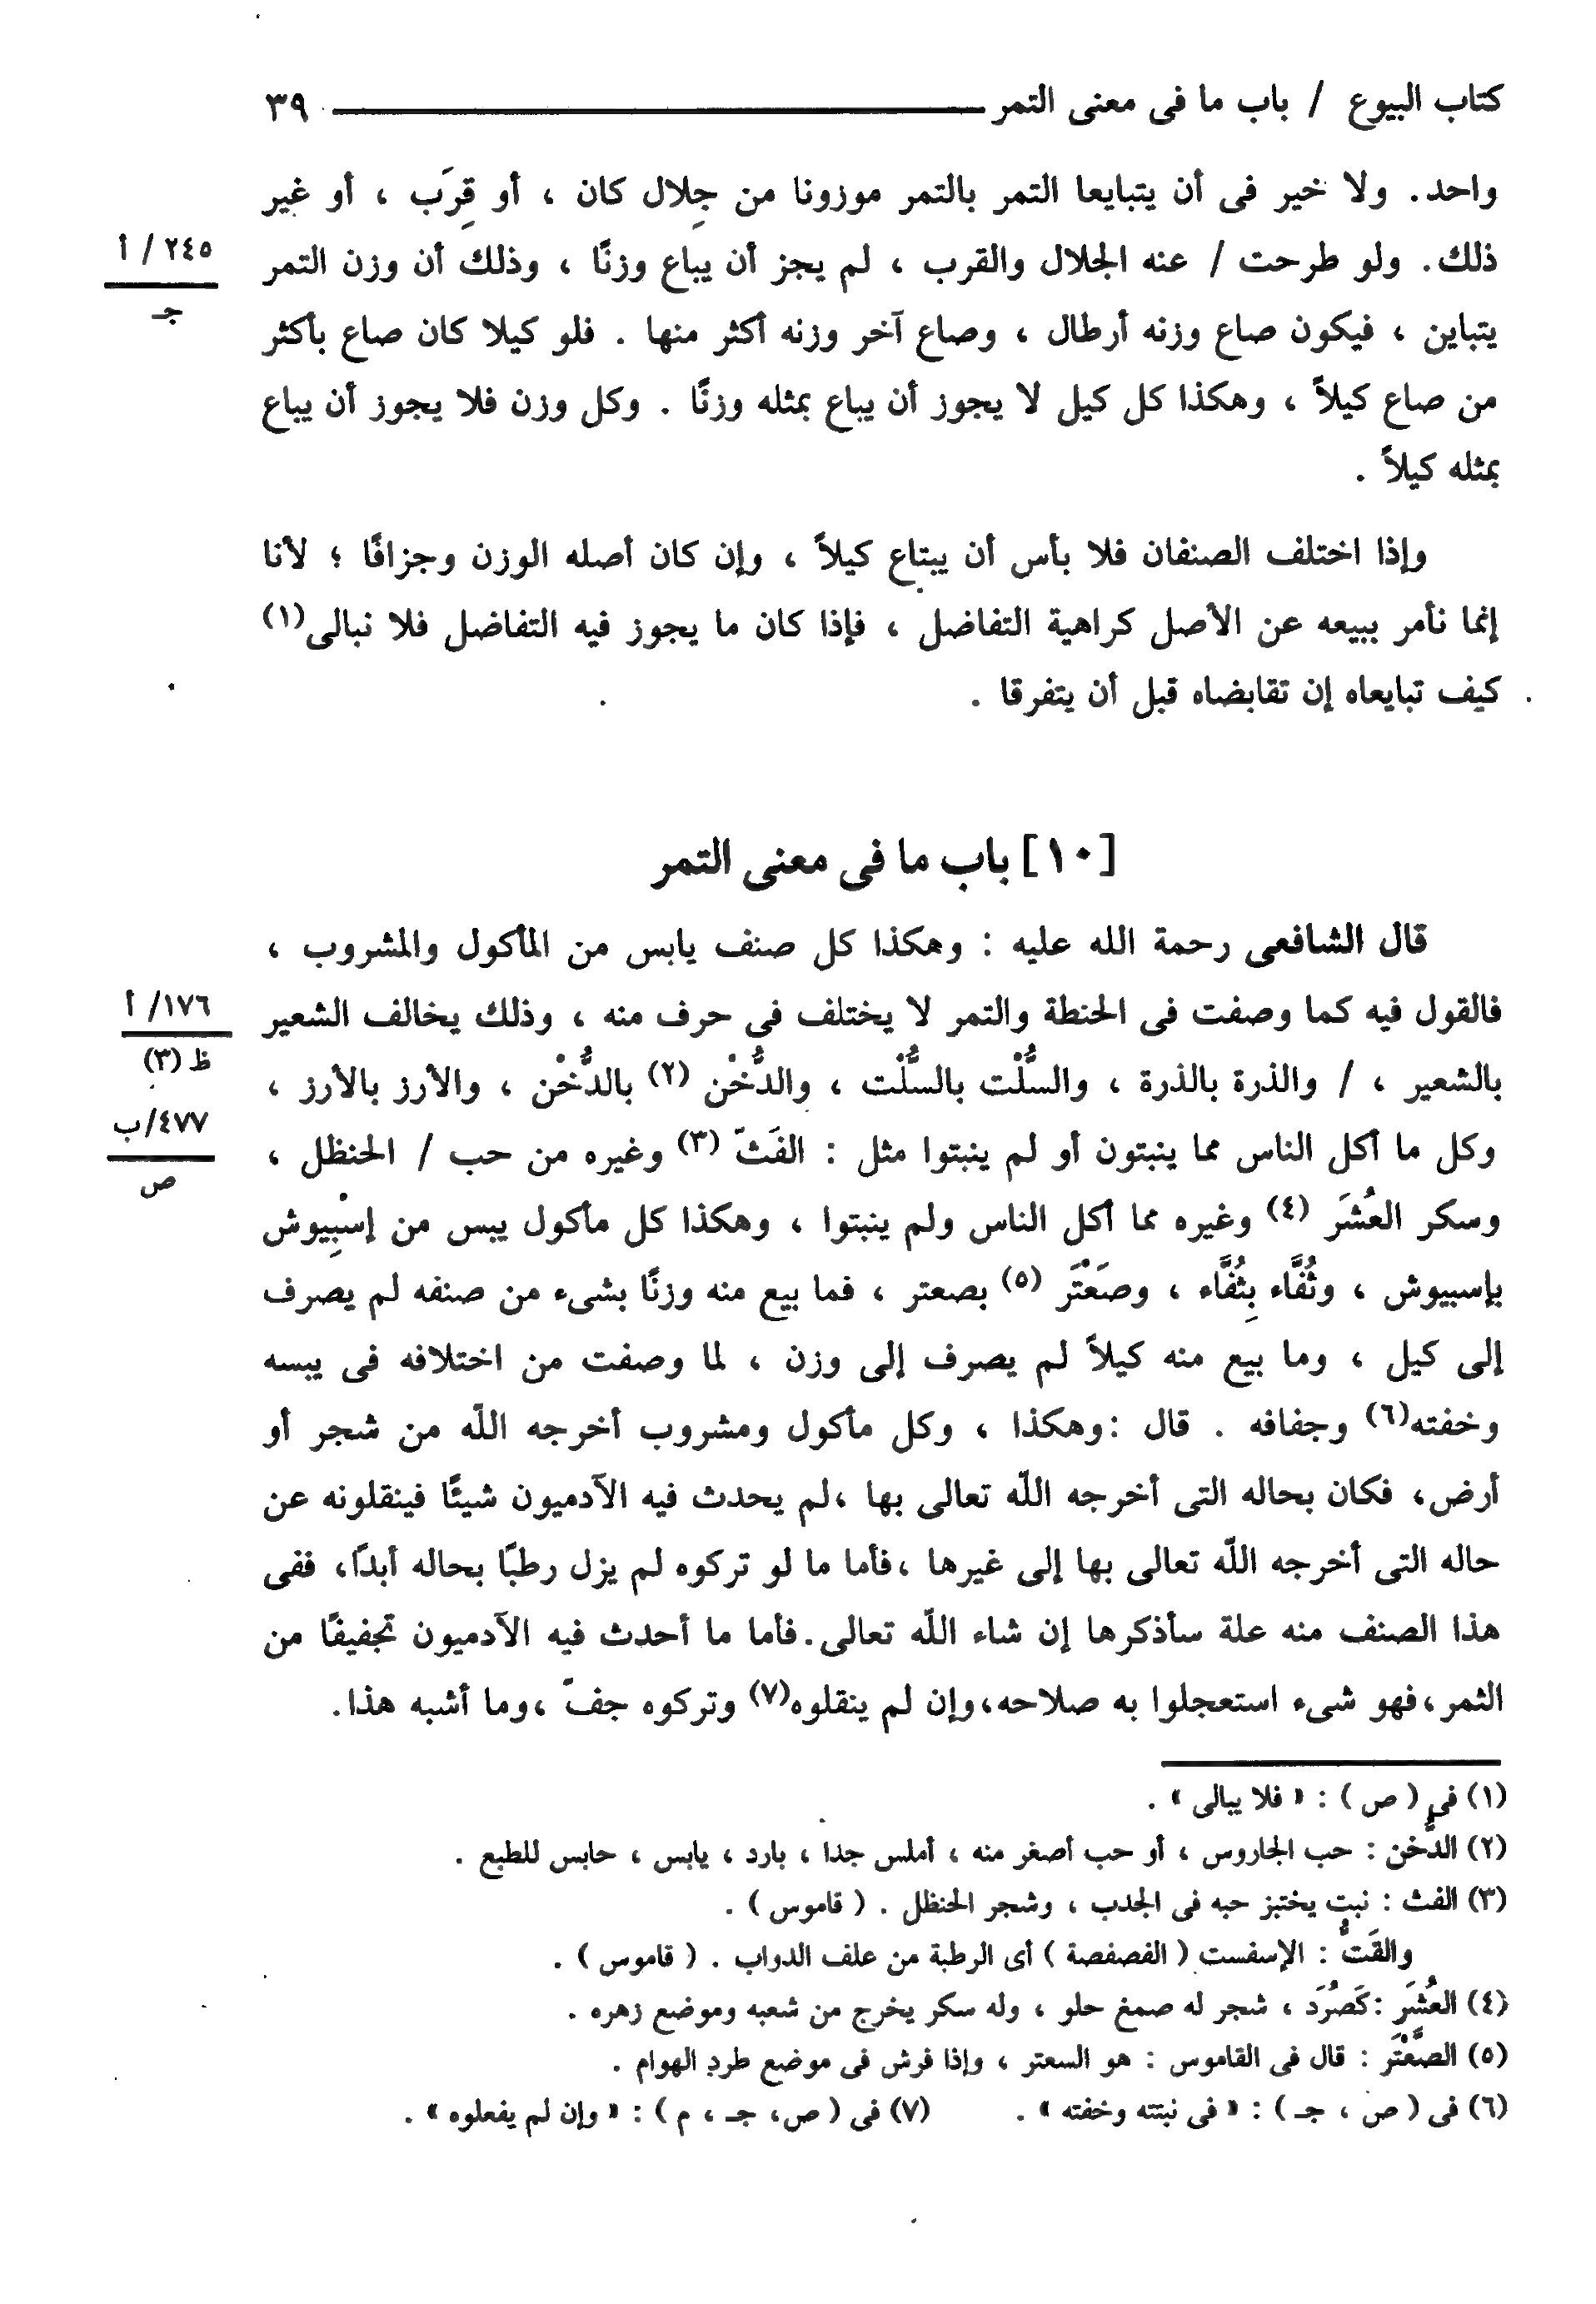 كتاب البيوع / باب ما فى معنى التمر ٣٩
واحد. ولا خير فى أن يتبايعا التمر بالتمر موزونا من جِلال كان ، أو قِرَب ، أو غير
ذلك. ولو طرحت / عنه الجلال والقرب ، لم يجز أن يباع وزنًا ، وذلك أن وزن التمر
٢٤٥ / أ
جـ
يتباين ، فيكون صاع وزنه أرطال ، وصاع آخر وزنه أكثر منها . فلو كيلا كان صاع بأكثر
من صاع كيلاً ، وهكذا كل كيل لا يجوز أن يباع بمثله وزنًا . وكل وزن فلا يجوز أن يباع
بمثله كيلاً .
وإذا اختلف الصنفان فلا بأس أن يبتاع كيلاً ، وإن كان أصله الوزن وجزافًا ؛ لأنا
إنما نأمر ببيعه عن الأصل كراهية التفاضل ، فإذا كان ما يجوز فيه التفاضل فلا نبالى(١)
كيف تبايعاه إن تقابضاه قبل أن يتفرقا .
[١٠] باب ما فى معنى التمر
قال الشافعى رحمة الله عليه : وهكذا كل صنف يابس من المأكول والمشروب ،
فالقول فيه كما وصفت فى الحنطة والتمر لا يختلف فى حرف منه ، وذلك يخالف الشعير
١٧٦/ أ
ظ (٣)
بالشعير ، / والذرة بالذرة ، والسُّلْت بالسُّلْت ، والدُّخْن (٢) بالدُّخْن ، والأرز بالأرز ،
٤٧٧/ب
ص
وكل ما أكل الناس مما ينبتون أو لم ينبتوا مثل : الفَثّ (٣) وغيره من حب / الحنظل ،
وسكر العُشَر (٤) وغيره مما أكل الناس ولم ينبتوا ، وهكذا كل مأكول يبس من إسْبِيوش
بإسبيوش ، وثُفَّاء بِثُفَّاء ، وصَعْتَر (٥) بصعتر ، فما بيع منه وزنًا بشىء من صنفه لم يصرف
إلى كيل ، وما بيع منه كيلاً لم يصرف إلى وزن ، لما وصفت من اختلافه فى يبسه
وخفته(٦) وجفافه . قال :وهكذا ، وكل مأكول ومشروب أخرجه اللّه من شجر أو
أرض، فكان بحاله التى أخرجه اللّه تعالى بها ،لم يحدث فيه الآدميون شيئًا فينقلونه عن
حاله التى أخرجه اللّه تعالى بها إلى غيرها ،فأما ما لو تركوه لم يزل رطبًا بحاله أبدًا، ففى
هذا الصنف منه علة سأذكرها إن شاء اللّه تعالى.فأما ما أحدث فيه الآدميون تجفيفًا من
الثمر،فهو شىء استعجلوا به صلاحه،وإن لم ينقلوه(٧) وتركوه جفّ ،وما أشبه هذا.
(١) فى ( ص ) : « فلا يبالى » .
(٢) الدُّخن : حب الجاروس ، أو حب أصغر منه ، أملس جدا ، بارد ، يابس ، حابس للطبع .
(٣) الفث : نبت يختبز حبه فى الجدب ، وشجر الحنظل . ( قاموس ) .
والقَتُّ : الإسفست ( الفصفصة ) أى الرطبة من علف الدواب . ( قاموس ) .
(٤) العُشَر :كَصُرَد ، شجر له صمغ حلو ، وله سكر يخرج من شعبه وموضع زهره .
(٥) الصَّعْتَر : قال فى القاموس : هو السعتر ، وإذا فرش فى موضع طرد الهوام .
(٦) فى ( ص ، جـ ) : « فى نبتته وخفته » . (٧) فى ( ص، جـ ، م ) : « وإن لم يفعلوه » .